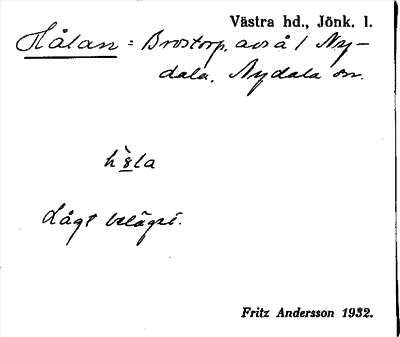 Västra hd., Jönk. l.
Hålan = Brostorp, avs å 1 Ny-
dala, Nydala sn.
Lågt belägri.
Fritz Andersson 1932.